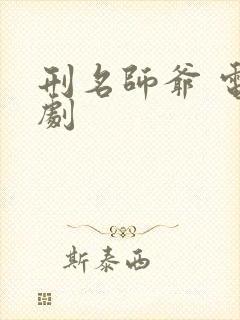 刑名師爺 電
劇
斯泰西